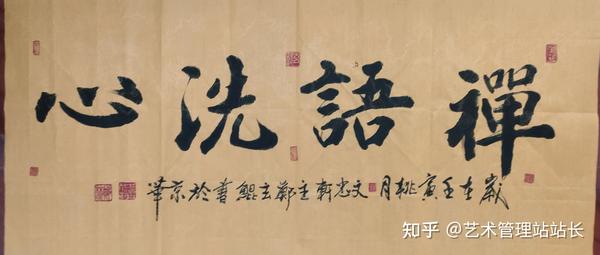 禪語洗心
歲在壬寅桃月文軒主鄭玄鯤書於京華
知乎 @艺术管理站站长